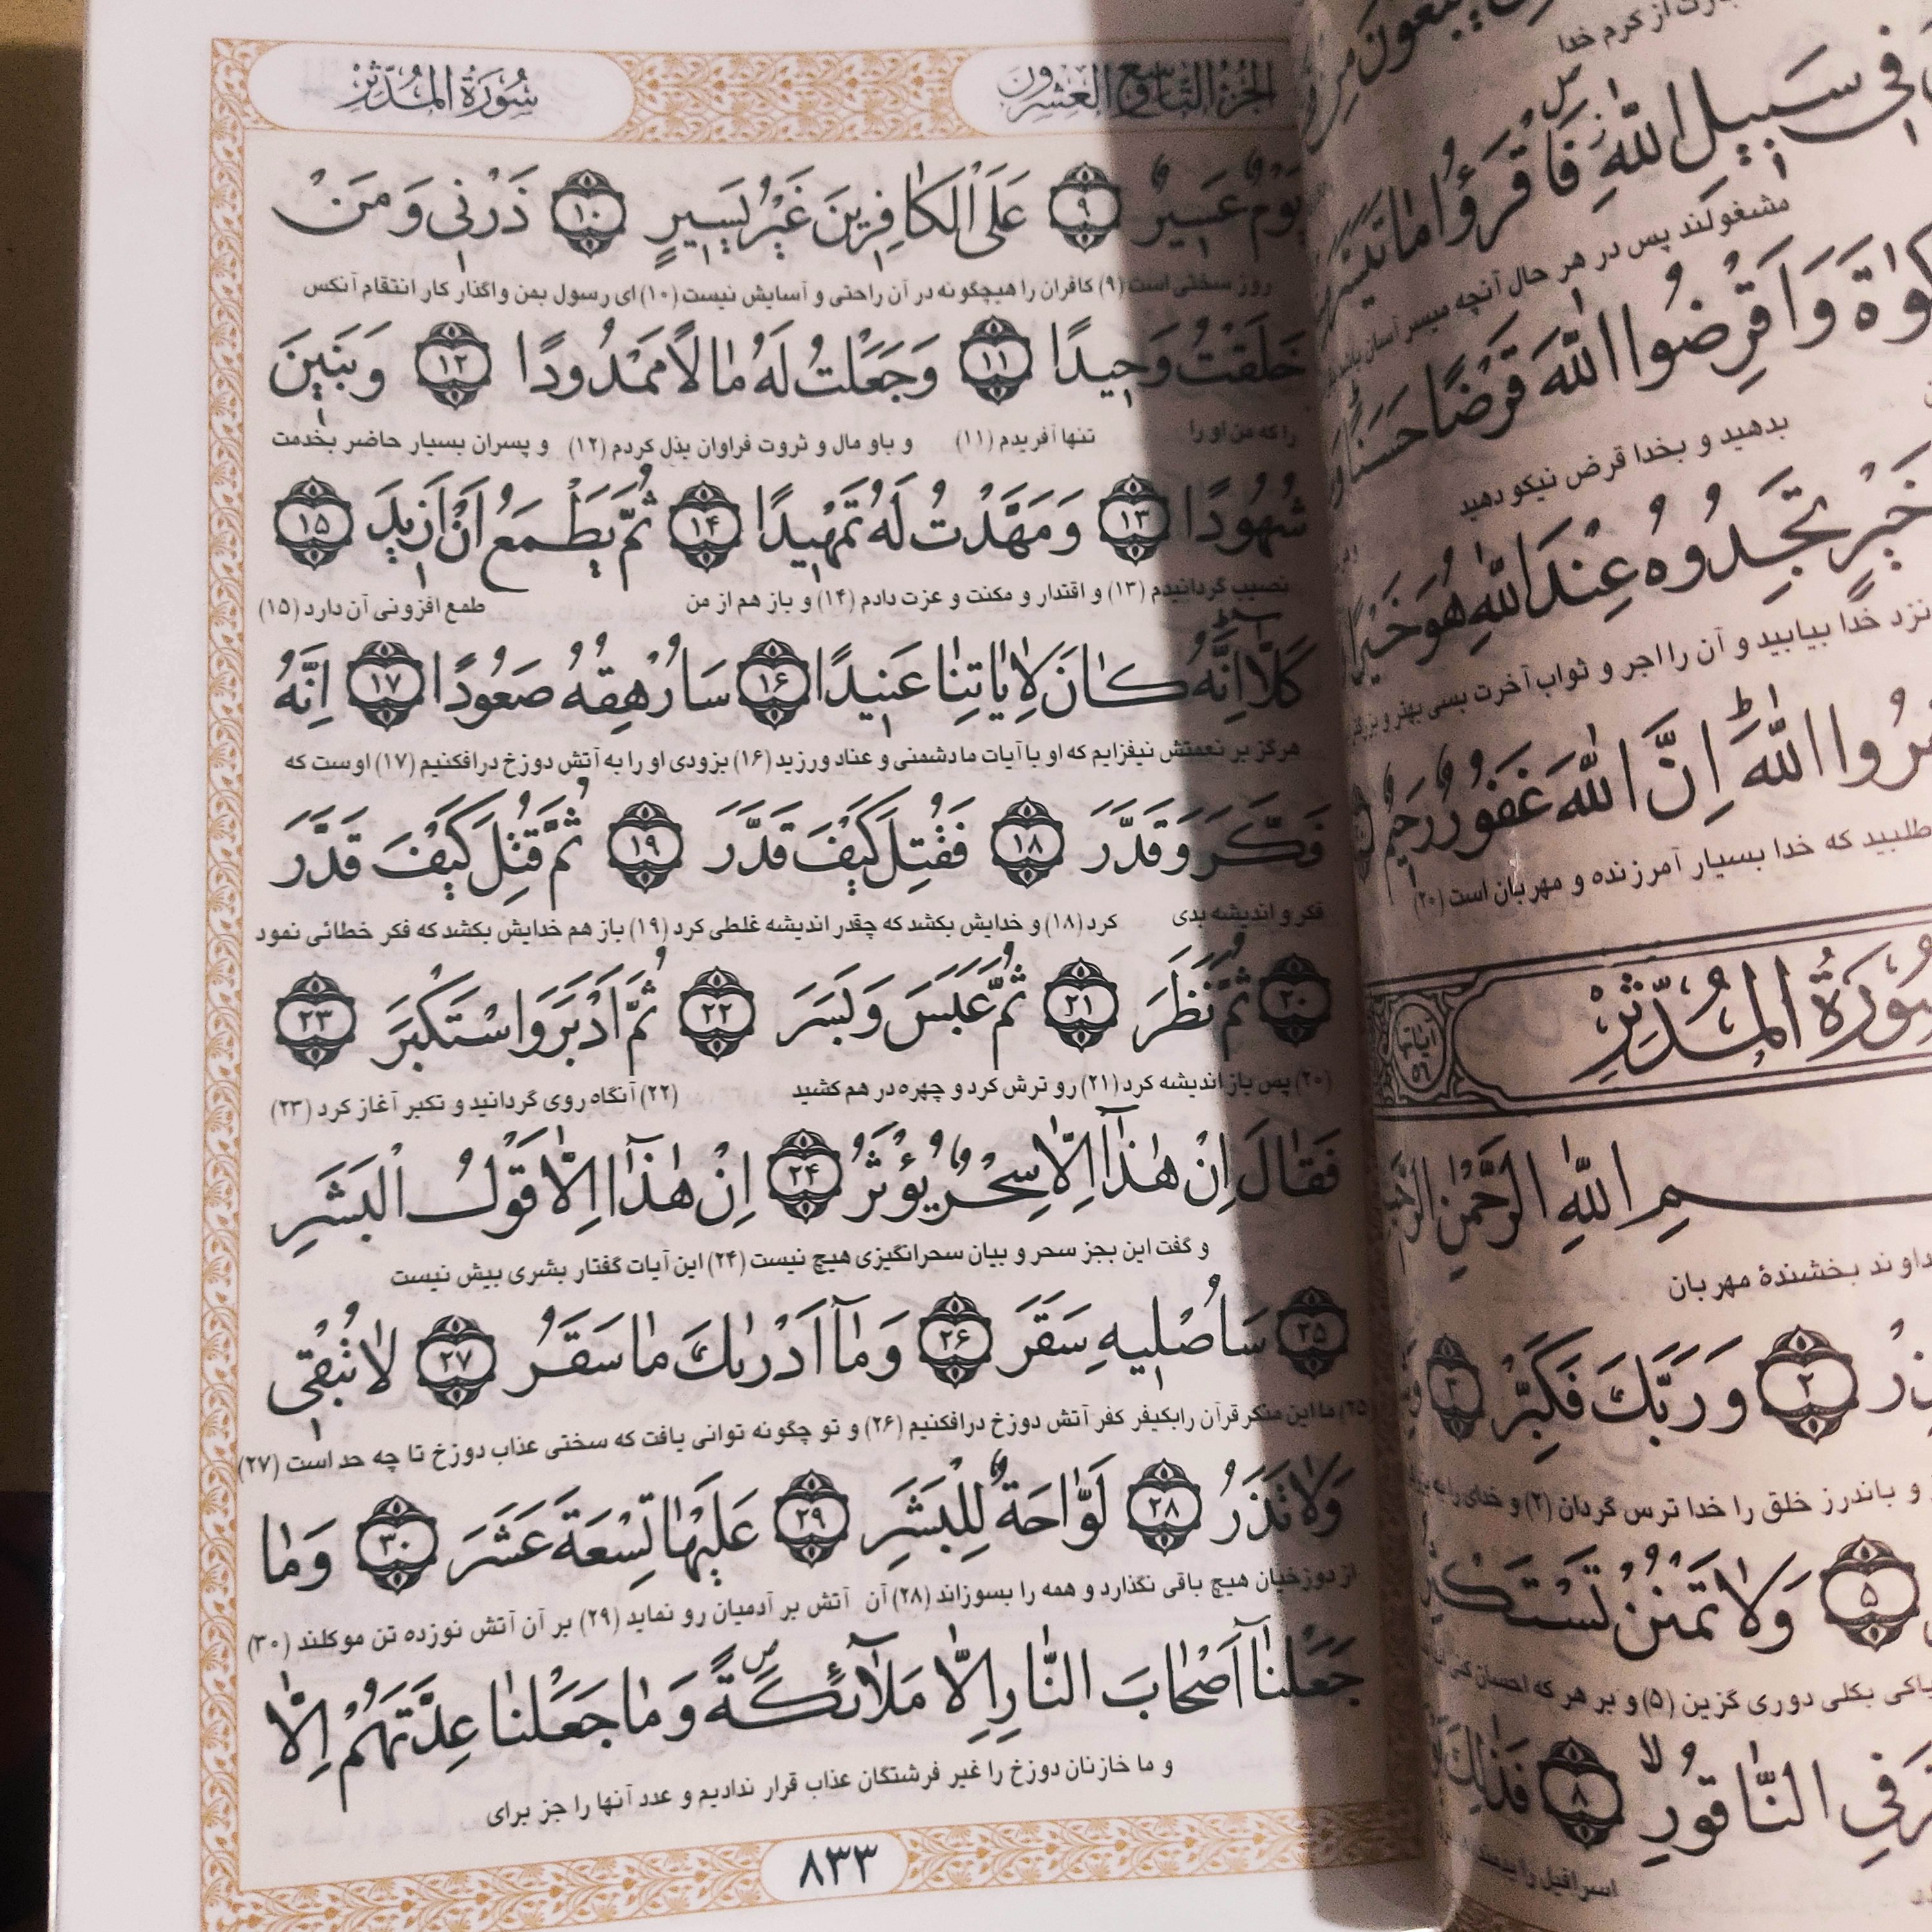 الجزء التاسع العشرون
سورة المدثر
يَوْمٌ عَسيرٌ ﴿۹﴾ عَلَى الْكافِرينَ غَيْرُ يَسيرٍ ﴿۱۰﴾ ذَرْني وَ مَنْ
روز سختی است (۹) کافران را هیچگونه در آن راحتی و آسایش نیست (۱۰) ای رسول بمن واگذار کار انتقام آنکس
خَلَقْتُ وَحيدًا ﴿۱۱﴾ وَ جَعَلْتُ لَهُ مالًا مَمْدُودًا ﴿۱۲﴾ وَ بَنينَ
را که من او را تنها آفریدم (۱۱) و باو مال و ثروت فراوان بذل کردم (۱۲) و پسران بسیار حاضر بخدمت
شُهُودًا ﴿۱۳﴾ وَ مَهَّدْتُ لَهُ تَمْهيدًا ﴿۱۴﴾ ثُمَّ يَطْمَعُ اَنْ اَزيدَ ﴿۱۵﴾
نصیب گردانیدم (۱۳) و اقتدار و مکنت و عزت دادم (۱۴) و باز هم از من طمع افزونی آن دارد (۱۵)
كَلَّا اِنَّهُ كانَ لِاياتِنا عَنيدًا ﴿۱۶﴾ سَاُرْهِقُهُ صَعُودًا ﴿۱۷﴾ اِنَّهُ
هرگز بر نعمتش نیفزایم که او با آیات ما دشمنی و عناد ورزید (۱۶) بزودی او را به آتش دوزخ درافکنیم (۱۷) اوست که
فَكَّرَ وَ قَدَّرَ ﴿۱۸﴾ فَقُتِلَ كَيْفَ قَدَّرَ ﴿۱۹﴾ ثُمَّ قُتِلَ كَيْفَ قَدَّرَ
فکر و اندیشه بدی کرد (۱۸) و خدایش بکشد که چقدر اندیشه غلطی کرد (۱۹) باز هم خدایش بکشد که فکر خطائی نمود
﴿۲۰﴾ ثُمَّ نَظَرَ ﴿۲۱﴾ ثُمَّ عَبَسَ وَ بَسَرَ ﴿۲۲﴾ ثُمَّ اَدْبَرَ وَ اسْتَكْبَرَ ﴿۲۳﴾
(۲۰) پس باز اندیشه کرد (۲۱) رو ترش کرد و چهره در هم کشید (۲۲) آنگاه روی گردانید و تکبر آغاز کرد (۲۳)
فَقالَ اِنْ هٰذا اِلَّا سِحْرٌ يُؤْثَرُ ﴿۲۴﴾ اِنْ هٰذا اِلَّا قَوْلُ الْبَشَرِ
و گفت این بجز سحر و بیان سحرانگیزی هیچ نیست (۲۴) این آیات گفتار بشری بیش نیست
﴿۲۵﴾ سَاُصْليهِ سَقَرَ ﴿۲۶﴾ وَ ما اَدْرٰىكَ ما سَقَرُ ﴿۲۷﴾ لا تُبْقي
(۲۵) ما این منکر قرآن را بکیفر کفر آتش دوزخ درافکنیم (۲۶) و تو چگونه توانی یافت که سختی عذاب دوزخ تا چه حد است (۲۷)
وَ لا تَذَرُ ﴿۲۸﴾ لَوَّاحَةٌ لِلْبَشَرِ ﴿۲۹﴾ عَلَيْها تِسْعَةَ عَشَرَ ﴿۳۰﴾ وَ ما
از دوزخیان هیچ باقی نگذارد و همه را بسوزاند (۲۸) آن آتش بر آدمیان رو نماید (۲۹) بر آن آتش نوزده تن موکلند (۳۰)
جَعَلْنا اَصْحابَ النَّارِ اِلَّا مَلٰئِكَةً وَ ما جَعَلْنا عِدَّتَهُمْ اِلَّا
و ما خازنان دوزخ را غیر فرشتگان عذاب قرار ندادیم و عدد آنها را جز برای
۸۳۳
از کرم خدا
في سَبيلِ اللّٰهِ فَاقْرَؤُا ما تَيَسَّرَ
مشغولند پس در هر حال آنچه میسر آسان باشد
وَ اَقْرِضُوا اللّٰهَ قَرْضًا حَسَنًا
بدهید و بخدا قرض نیکو دهید
خَيْرٍ تَجِدُوهُ عِنْدَ اللّٰهِ هُوَ خَيْرًا
نزد خدا بیابید و آن را اجر و ثواب آخرت بسی بهتر و بزرگتر
اللّٰهَ اِنَّ اللّٰهَ غَفُورٌ رَحيمٌ
طلبید که خدا بسیار آمرزنده و مهربان است (۲۰)
سُورَةُ الْمُدَّثِّرِ
اللّٰهِ الرَّحْمٰنِ الرَّحيمِ
بخشندهٔ مهربان
﴿۲﴾ وَ رَبَّكَ فَكَبِّرْ ﴿۳﴾
و باندرز خلق را خدا ترس گردان (۲) و خدای را به
﴿۵﴾ وَ لا تَمْنُنْ تَسْتَكْثِرُ
بکلی دوری گزین (۵) و بر هر که احسان کنی
فِي النَّاقُورِ ﴿۸﴾ فَذٰلِكَ
اسرافیل را